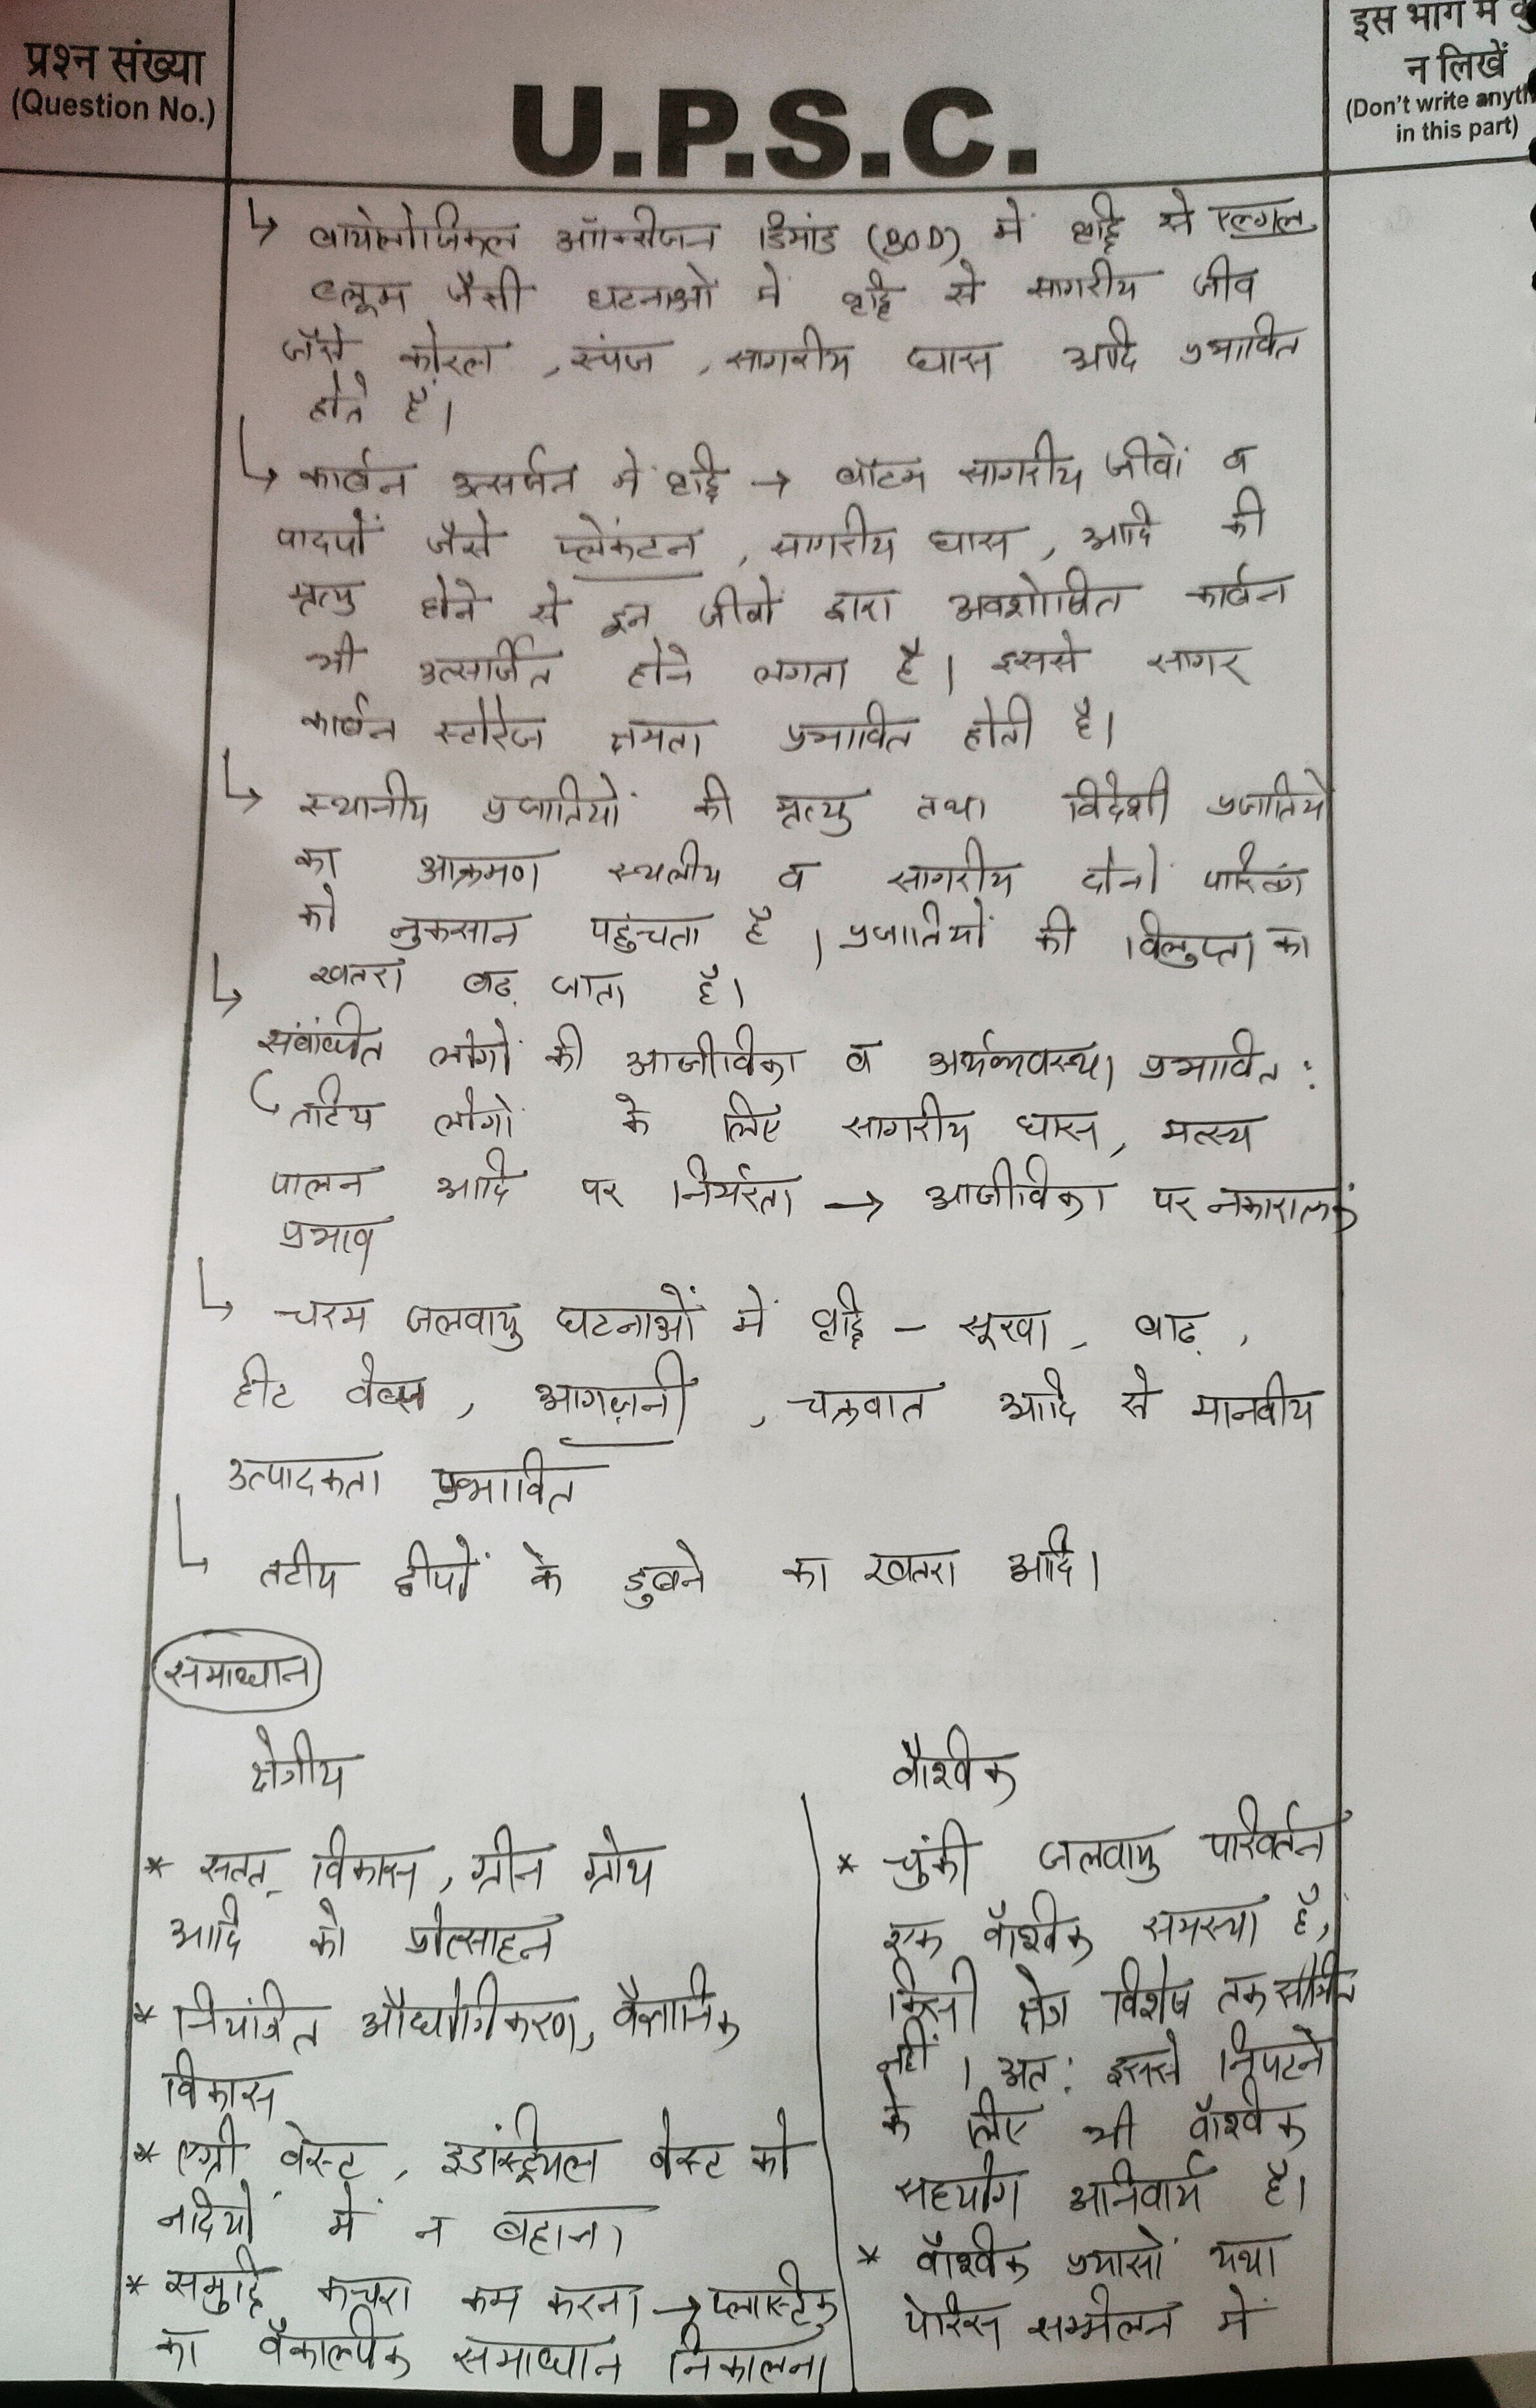 प्रश्न संख्या
(Question No.)
U.P.S.C.
इस भाग में
न लिखें
(Don't write
in this part)
↳ बायोलोजिकल ऑक्सीजन डिमांड (BOD) में वृद्धि से एल्गल
ब्लूम जैसी घटनाओं में वृद्धि से सागरीय जीव
जैसे कोरल, स्पंज, सागरीय घास आदि प्रभावित
होते है।
↳ कार्बन उत्सर्जन में वृद्धि → बॉटम सागरीय जीवों व
पादपों जैसे प्लेंकटन, सागरीय घास, आदि की
मृत्यु होने से इन जीवों द्वारा अवशोषित कार्बन
भी उत्सर्जित होने लगता है। इससे सागर
कार्बन स्टोरेज क्षमता प्रभावित होती है।
↳ स्थानीय प्रजातियों की मृत्यु तथा विदेशी प्रजातियों
का आक्रमण स्थलीय व सागरीय दोनों पारितंत्र
को नुकसान पहुंचता है। प्रजातियों की विलुप्ता का
खतरा बढ़ जाता है।
↳ संबंधित लोगों की आजीविका व अर्थव्यवस्था प्रभावित:
तटिय लोगों के लिए सागरीय घास, मत्स्य
पालन आदि पर निर्भरता → आजीविका पर नकारात्मक
प्रभाव
↳ चरम जलवायु घटनाओं में वृद्धि - सूखा, बाढ़,
हीट वेव्स, आगज़नी, चक्रवात आदि से मानवीय
उत्पादकता प्रभावित
↳ तटीय द्वीपों के डुबने का खतरा आदि।
समाधान
क्षेत्रीय
* सतत् विकास, ग्रीन ग्रोथ
आदि को प्रोत्साहन
* नियंत्रित औद्योगिकरण, वैज्ञानिक
विकास
* एग्री वेस्ट, इडांस्ट्रियल वेस्ट को
नदियों में न बहाना
* समुद्रि कचरा कम करना → प्लास्टिक
का वैकाल्पिक समाधान निकालना
वैश्विक
* चुंकी जलवायु परिवर्तन
एक वैश्विक समस्या है,
किसी क्षेत्र विशेष तक सीमित
नहीं। अत: इससे निपटने
के लिए भी वैश्विक
सहयोग अनिवार्य है।
* वैश्विक प्रयासों यथा
पेरिस सम्मेलन में